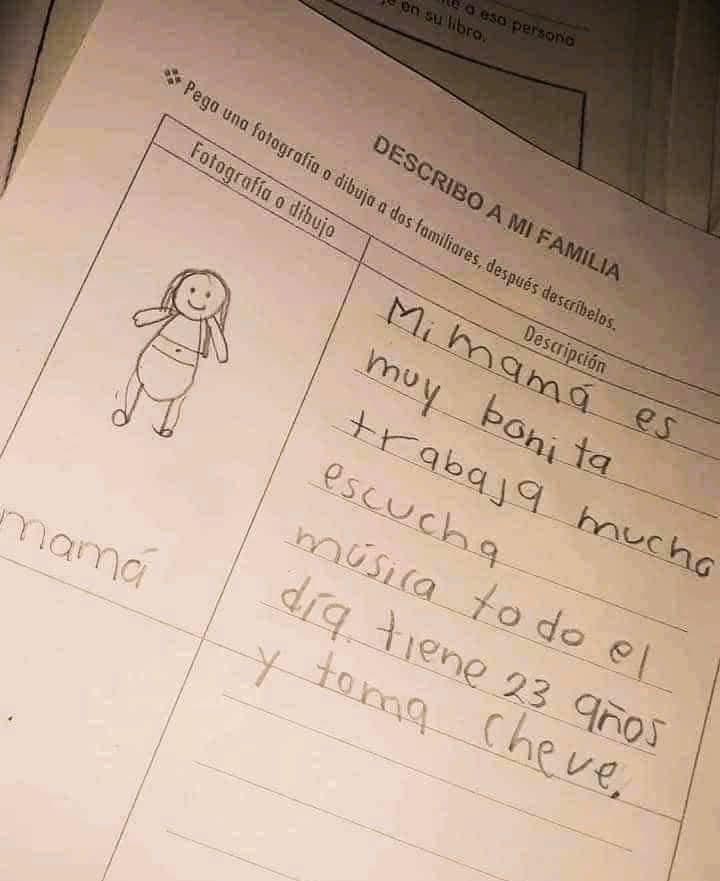 te a esa persona
en su libro.
DESCRIBO A MI FAMILIA
Pega una fotografía o dibuja a dos familiares, después descríbelos.
Fotografía o dibujo
Descripción
Mi mamá es
muy bonita
trabaja mucho
escucha
música todo el
día. tiene 23 años
y toma cheve.
mamá